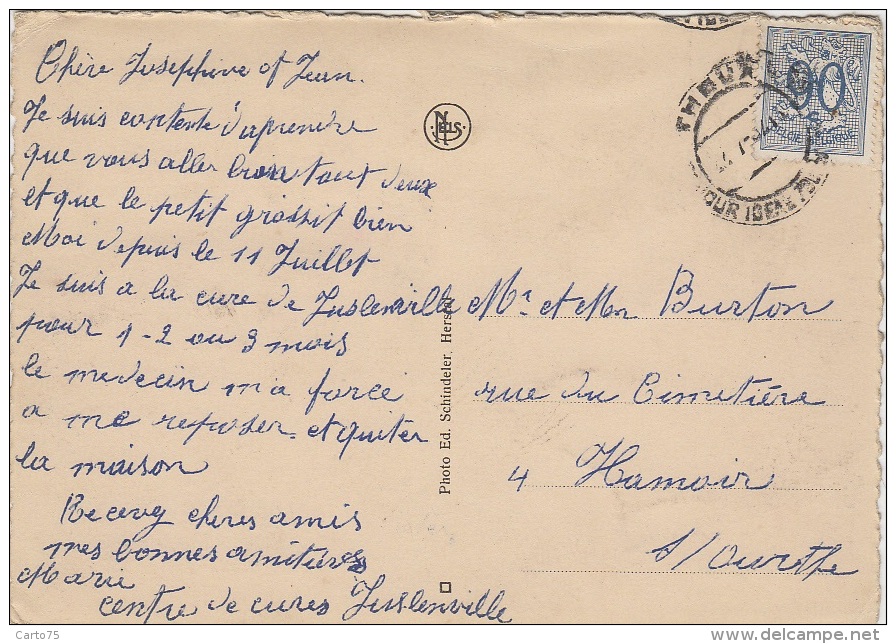 Chère Josephine et Jean.
Je suis contente d'aprendre
que vous aller bien tout deux
et que le petit grossit bien
Moi depuis le 11 Juillet
Je suis a la cure de Juslenville
pour 1-2 ou 3 mois
le medecin m'a forcé
a me reposer et quiter
la maison
Recevez cheres amis
mes bonnes amitiéres
Marie
centre de cures Juslenville
NELS
Photo Ed. Schindeler, Herstal
THEUX
90
BELGIQUE
Mr et Mm Burton
rue du Cimetière
4 Hamoir
s/Ourthe
Carto75
delcampe.net